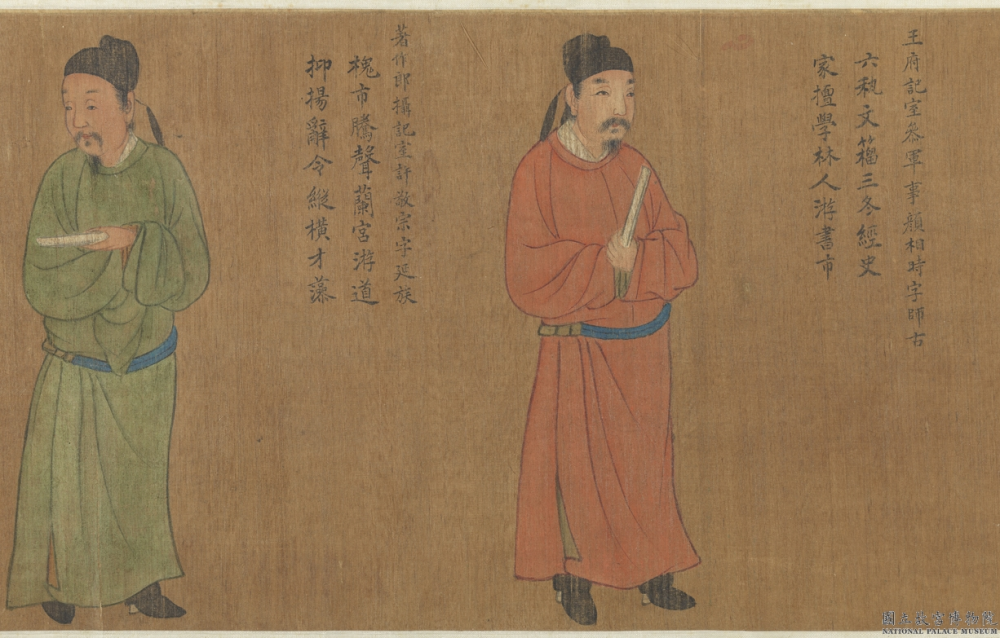 王府記室叅軍事顏相時字師古
六秇文籀三冬經史
家擅學林人游書市
著作郎攝記室許敬宗字延族
槐市騰聲蘭宮游道
抑揚辭令縱橫才藻
國立故宮博物院
NATIONAL PALACE MUSEUM